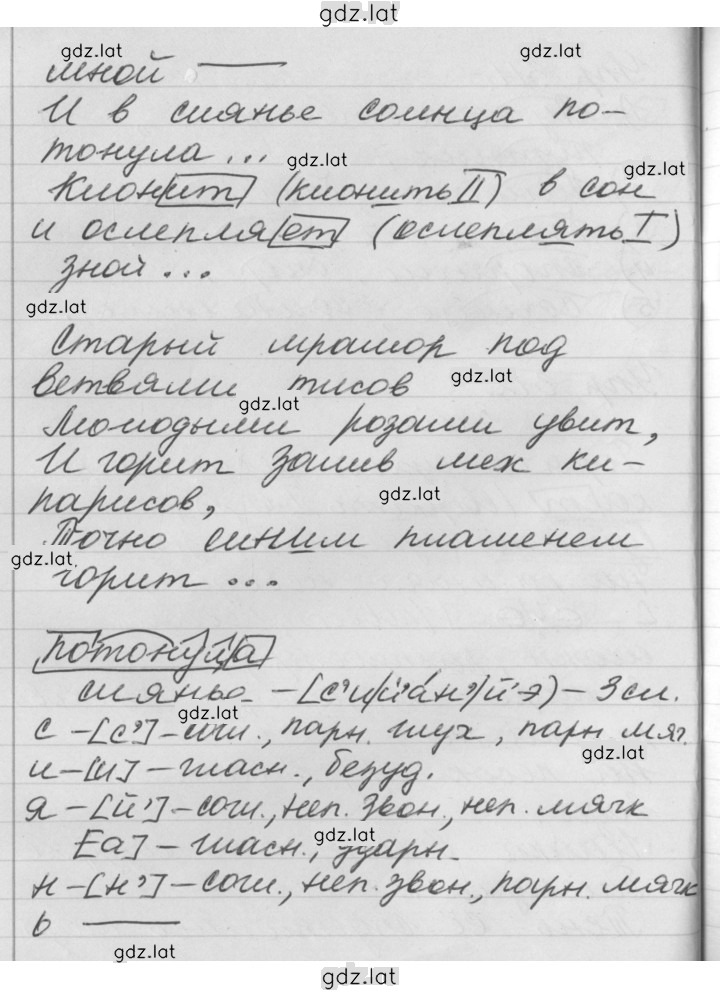 gdz.lat
gdz.lat gdz.lat
мной —
И в сиянье солнца по-
тонула ...
gdz.lat
gdz.lat
Клонит (клонить II) в сон
и ослепляет (ослеплять I)
зной ...
gdz.lat
Старый мрамор под
ветвями тисов
gdz.lat
gdz.lat
Молодыми розами увит,
И горит залив меж ки-
парисов,
gdz.lat
Точно синим пламенем
gdz.lat
горит ...
потонула
сиянье - [с'ий'ан'й'э] - 3 сл.
gdz.lat
с - [с'] - согл., парн. глух, парн. мяг.
gdz.lat
и - [и] - гласн., безуд.
я - [й'] - согл., неп. звон., неп. мягк
gdz.lat
[а] - гласн., ударн.
н - [н'] - согл., неп. звон., парн. мягк
ь —
gdz.lat
gdz.lat